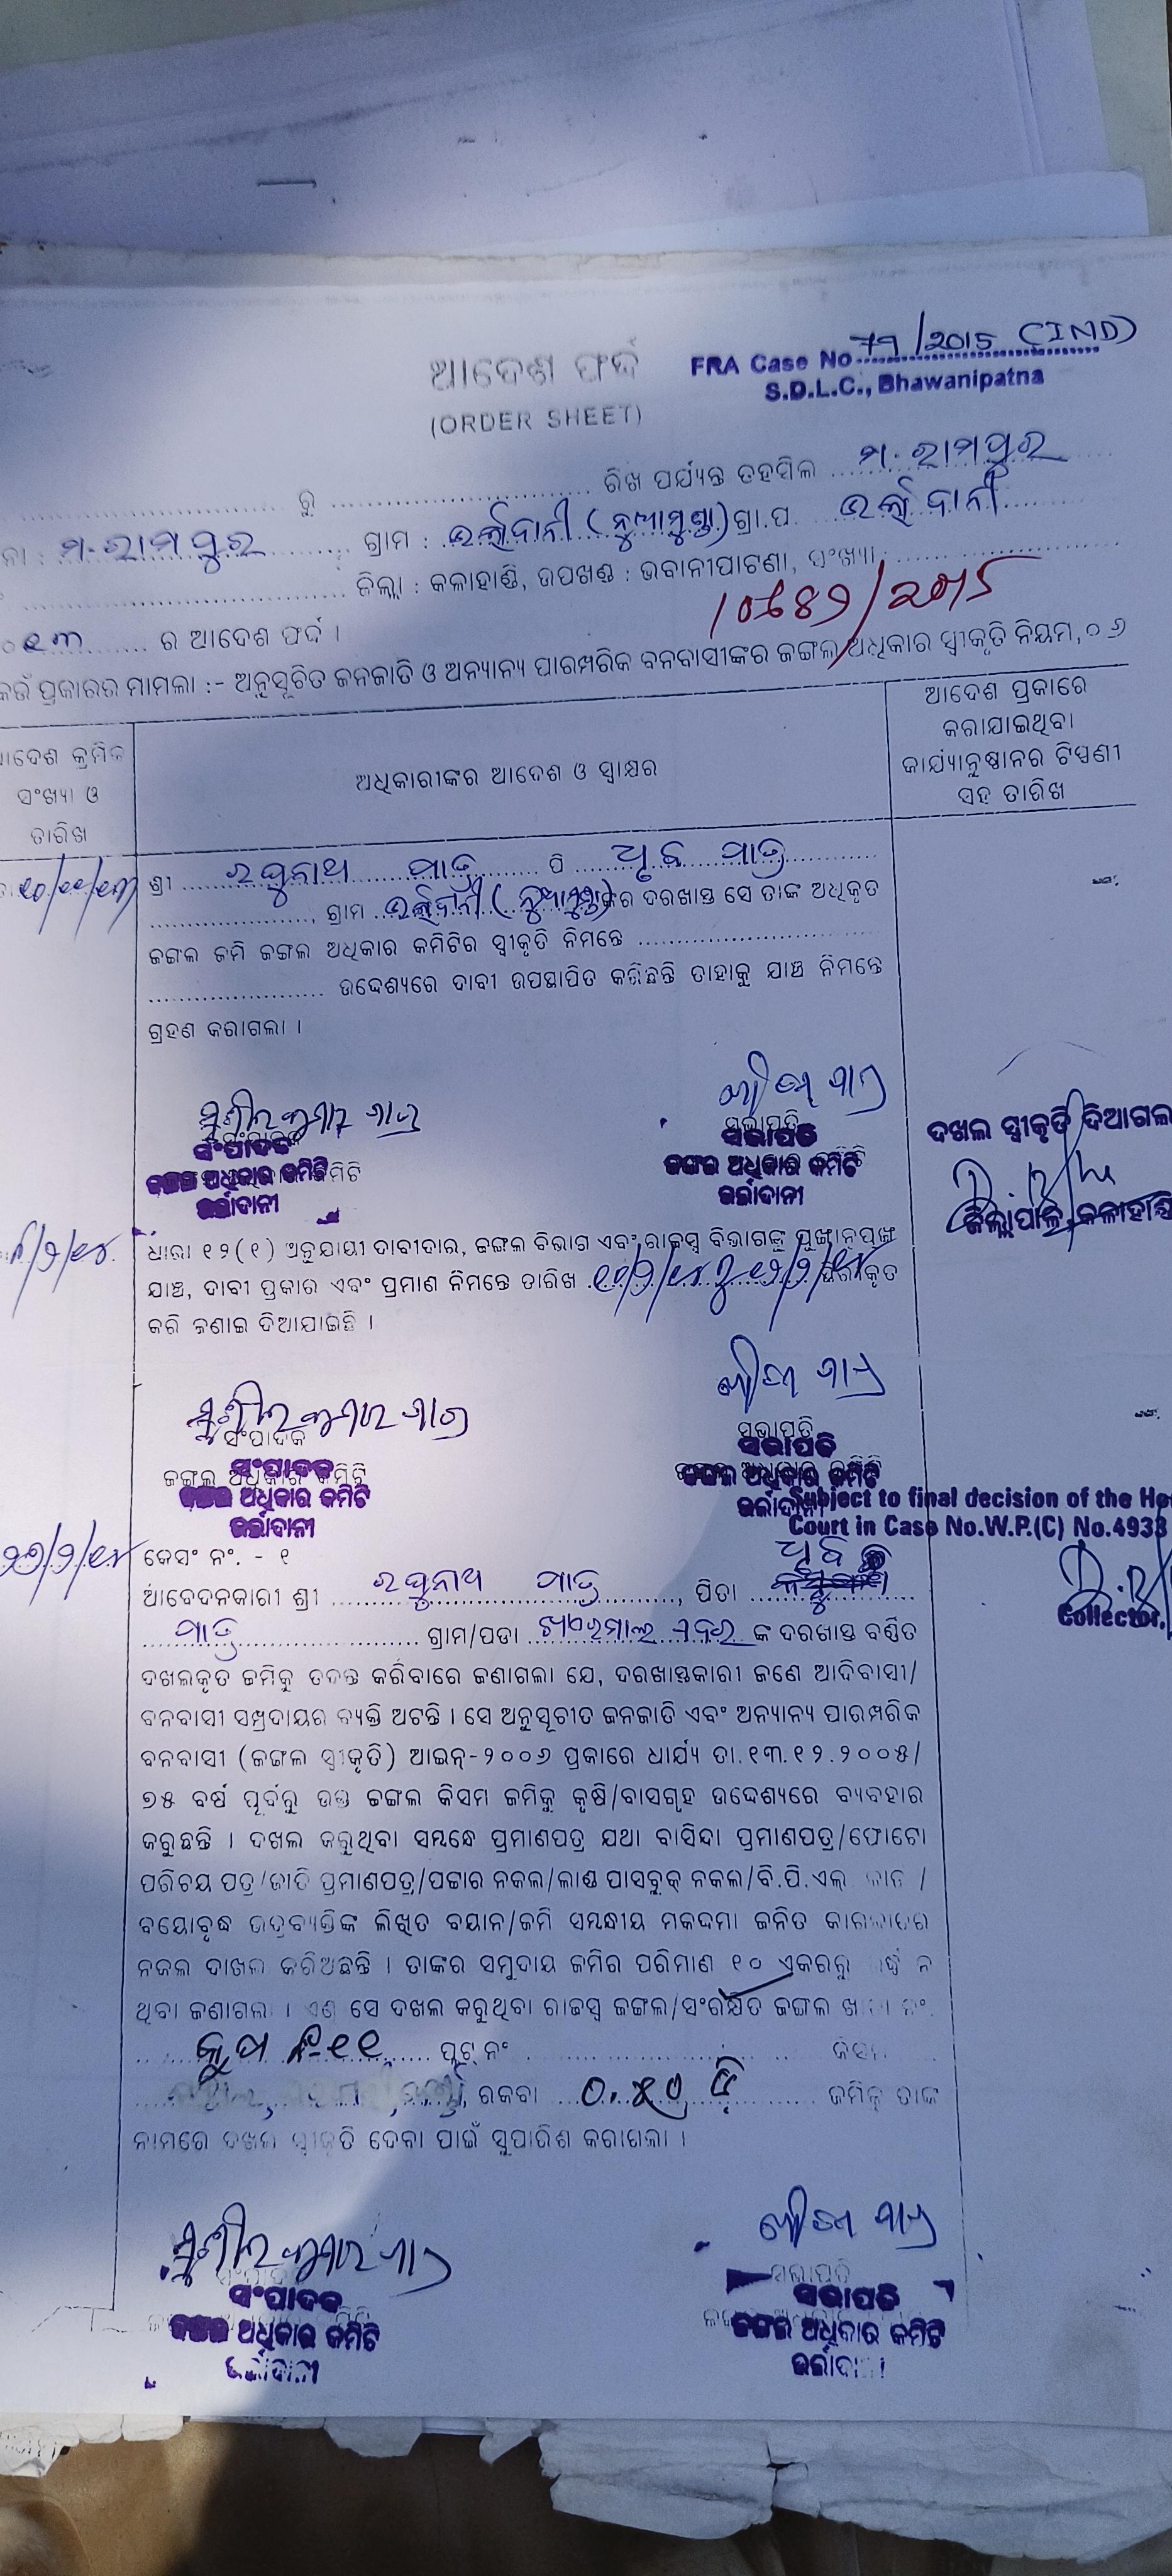 ଆଦେଶ ଫର୍ଦ୍ଦ
(ORDER SHEET)
FRA Case No 77/2015 (IND)
S.D.L.C., Bhawanipatna
ରୁ ରିଖ ପର୍ଯ୍ୟନ୍ତ ତହସିଲ ମ. ରାମପୁର
ନା : ମ. ରାମପୁର ଗ୍ରାମ : ଉର୍ଲାଦାନୀ (ନୂଆମୁଣ୍ଡା) ଗ୍ରା.ପ. ଉର୍ଲାଦାନୀ
ଜିଲ୍ଲା : କଳାହାଣ୍ଡି, ଉପଖଣ୍ଡ : ଭବାନୀପାଟଣା, ସଂଖ୍ୟା
ର ଆଦେଶ ଫର୍ଦ୍ଦ ।
କେଉଁ ପ୍ରକାରର ମାମଲା :- ଅନୁସୂଚିତ ଜନଜାତି ଓ ଅନ୍ୟାନ୍ୟ ପାରମ୍ପରିକ ବନବାସୀଙ୍କର ଜଙ୍ଗଲ ଅଧିକାର ସ୍ୱୀକୃତି ନିୟମ, ୦୬
ଆଦେଶ କ୍ରମିକ
ସଂଖ୍ୟା ଓ
ତାରିଖ
ଅଧିକାରୀଙ୍କର ଆଦେଶ ଓ ସ୍ୱାକ୍ଷର
ଆଦେଶ ପ୍ରକାରେ
କରାଯାଇଥିବା
କାର୍ଯ୍ୟାନୁଷ୍ଠାନର ଟିପ୍ପଣୀ
ସହ ତାରିଖ
ଶ୍ରୀ ରଘୁନାଥ ମାଝୀ ପି ଧୃବ ମାଝୀ
, ଗ୍ରାମ ଉର୍ଲାଦାନୀ (ନୂଆମୁଣ୍ଡା)ଙ୍କର ଦରଖାସ୍ତ ସେ ତାଙ୍କ ଅଧିକୃତ
ଜଙ୍ଗଲ ଜମି ଜଙ୍ଗଲ ଅଧିକାର କମିଟିର ସ୍ୱୀକୃତି ନିମନ୍ତେ
ଉଦ୍ଦେଶ୍ୟରେ ଦାବୀ ଉପସ୍ଥାପିତ କରିଛନ୍ତି ତାହାକୁ ଯାଞ୍ଚ ନିମନ୍ତେ
ଗ୍ରହଣ କରାଗଲା ।
ସଂପାଦକ
ଜଙ୍ଗଲ ଅଧିକାର କମିଟି
ଉର୍ଲାଦାନୀ
ସଭାପତି
ଜଙ୍ଗଲ ଅଧିକାର କମିଟି
ଉର୍ଲାଦାନୀ
ଦଖଲ ସ୍ୱୀକୃତି ଦିଆଗଲ
ଜିଲ୍ଲାପାଳ, କଳାହାଣ୍ଡି
ଧାରା ୧୨(୧) ଅନୁଯାୟୀ ଦାବୀଦାର, ଜଙ୍ଗଲ ବିଭାଗ ଏବଂ ରାଜସ୍ୱ ବିଭାଗଙ୍କୁ ପୁଙ୍ଖାନୁପୁଙ୍ଖ
ଯାଞ୍ଚ, ଦାବୀ ପ୍ରକାର ଏବଂ ପ୍ରମାଣ ନିମନ୍ତେ ତାରିଖ
କରି ଜଣାଇ ଦିଆଯାଇଛି ।
ସଂପାଦକ
ଜଙ୍ଗଲ ଅଧିକାର କମିଟି
ଉର୍ଲାଦାନୀ
ସଭାପତି
ଜଙ୍ଗଲ ଅଧିକାର କମିଟି
ଉର୍ଲାଦାନୀ
Subject to final decision of the Ho
Court in Case No.W.P.(C) No.4933
Collector,
କେସ୍ ନଂ. - ୧
ଆବେଦନକାରୀ ଶ୍ରୀ ରଘୁନାଥ ମାଝୀ, ପିତା ଧୃବ
ମାଝୀ ଗ୍ରାମ/ପଡା ଙ୍କ ଦରଖାସ୍ତ ବର୍ଣ୍ଣିତ
ଦଖଲକୃତ ଜମିକୁ ତଦନ୍ତ କରିବାରେ ଜଣାଗଲା ଯେ, ଦରଖାସ୍ତକାରୀ ଜଣେ ଆଦିବାସୀ/
ବନବାସୀ ସମ୍ପ୍ରଦାୟର ବ୍ୟକ୍ତି ଅଟନ୍ତି । ସେ ଅନୁସୂଚୀତ ଜନଜାତି ଏବଂ ଅନ୍ୟାନ୍ୟ ପାରମ୍ପରିକ
ବନବାସୀ (ଜଙ୍ଗଲ ସ୍ୱୀକୃତି) ଆଇନ୍-୨୦୦୬ ପ୍ରକାରେ ଧାର୍ଯ୍ୟ ତା.୧୩.୧୨.୨୦୦୫/
୭୫ ବର୍ଷ ପୂର୍ବରୁ ଉକ୍ତ ଜଙ୍ଗଲ କିସମ ଜମିକୁ କୃଷି/ବାସଗୃହ ଉଦ୍ଦେଶ୍ୟରେ ବ୍ୟବହାର
କରୁଛନ୍ତି । ଦଖଲ କରୁଥିବା ସମ୍ବନ୍ଧେ ପ୍ରମାଣପତ୍ର ଯଥା ବାସିନ୍ଦା ପ୍ରମାଣପତ୍ର/ଫୋଟୋ
ପରିଚୟ ପତ୍ର/ଜାତି ପ୍ରମାଣପତ୍ର/ପଟ୍ଟାର ନକଲ/ଲାଣ୍ଡ ପାସବୁକ୍ ନକଲ/ବି.ପି.ଏଲ୍ /
ବୟୋବୃଦ୍ଧ ଭଦ୍ରବ୍ୟକ୍ତିଙ୍କ ଲିଖିତ ବୟାନ/ଜମି ସମ୍ବନ୍ଧୀୟ ମକଦ୍ଦମା ଜନିତ
ନକଲ ଦାଖଲ କରିଅଛନ୍ତି । ତାଙ୍କର ସମୁଦାୟ ଜମିର ପରିମାଣ ୧୦ ଏକରରୁ ନ
ଥିବା ଜଣାଗଲା । ଏଣୁ ସେ ଦଖଲ କରୁଥିବା ରାଜସ୍ୱ ଜଙ୍ଗଲ/ସଂରକ୍ଷିତ ଜଙ୍ଗଲ ନଂ.
ପ୍ଲଟ୍ ନଂ
ରକବା ଜମିକୁ ତାଙ୍କ
ନାମରେ ଦଖଲ ସ୍ୱୀକୃତି ଦେବା ପାଇଁ ସୁପାରିଶ କରାଗଲା ।
ସଂପାଦକ
ଜଙ୍ଗଲ ଅଧିକାର କମିଟି
ଉର୍ଲାଦାନୀ
ସଭାପତି
ଜଙ୍ଗଲ ଅଧିକାର କମିଟି
ଉର୍ଲାଦାନୀ